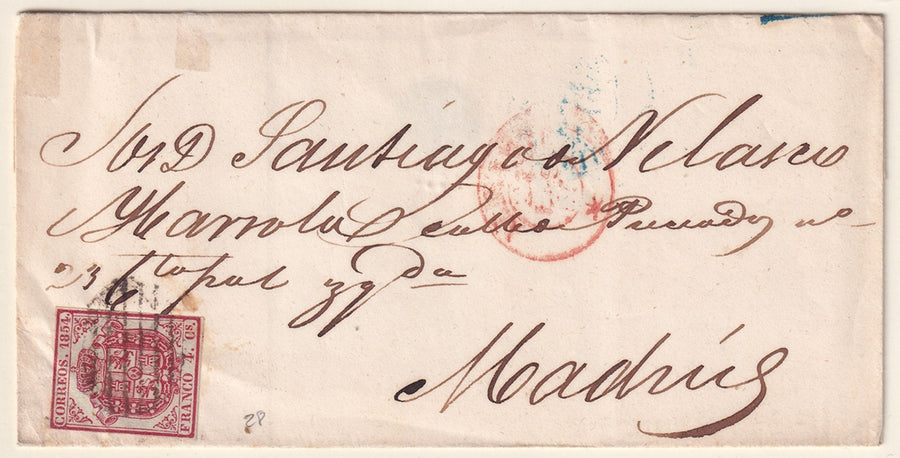 Sor D Santiago de Velasco
Ybarrola calle Preciados nº
23 pral yzqda
Madrid
CORREOS. 1854.
FRANCO 4. CS.
28